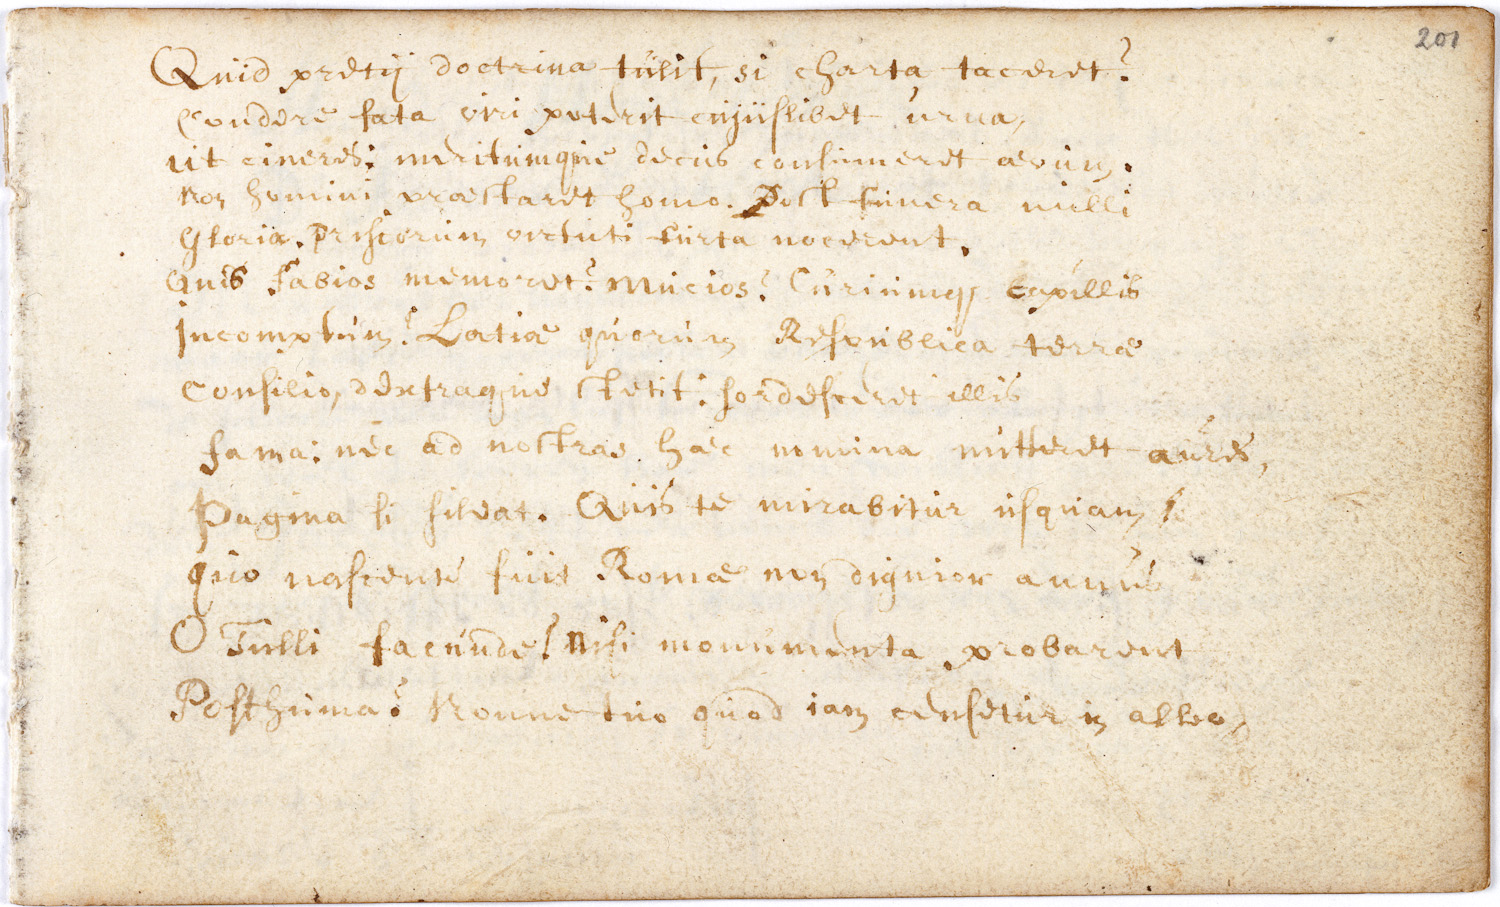 201
Quid pretij doctrina tulit, si charta taceret?
Condere fata viri poterit cujuslibet urna,
ut cineres: meritumque decus consumeret aevum.
Non homini praestaret homo. Post funera nulli
Gloria. Priscorum virtuti furta nocerent.
Quis Fabios memoret? Mucios? Curiumq, capillis
Incomptum? Latiae quorum Respublica terrae
Consilio, dextraque stetit: sordesceret illis
fama: nec ad nostras haec nomina mitteret aures,
Pagina si sileat. Quis te mirabitur usquam,
quo nascente fuit Romae non dignior annus
O Tulli facunde! Nisi monumenta probarent
Posthuma? Nonne tuo quod iam censetur in albo,